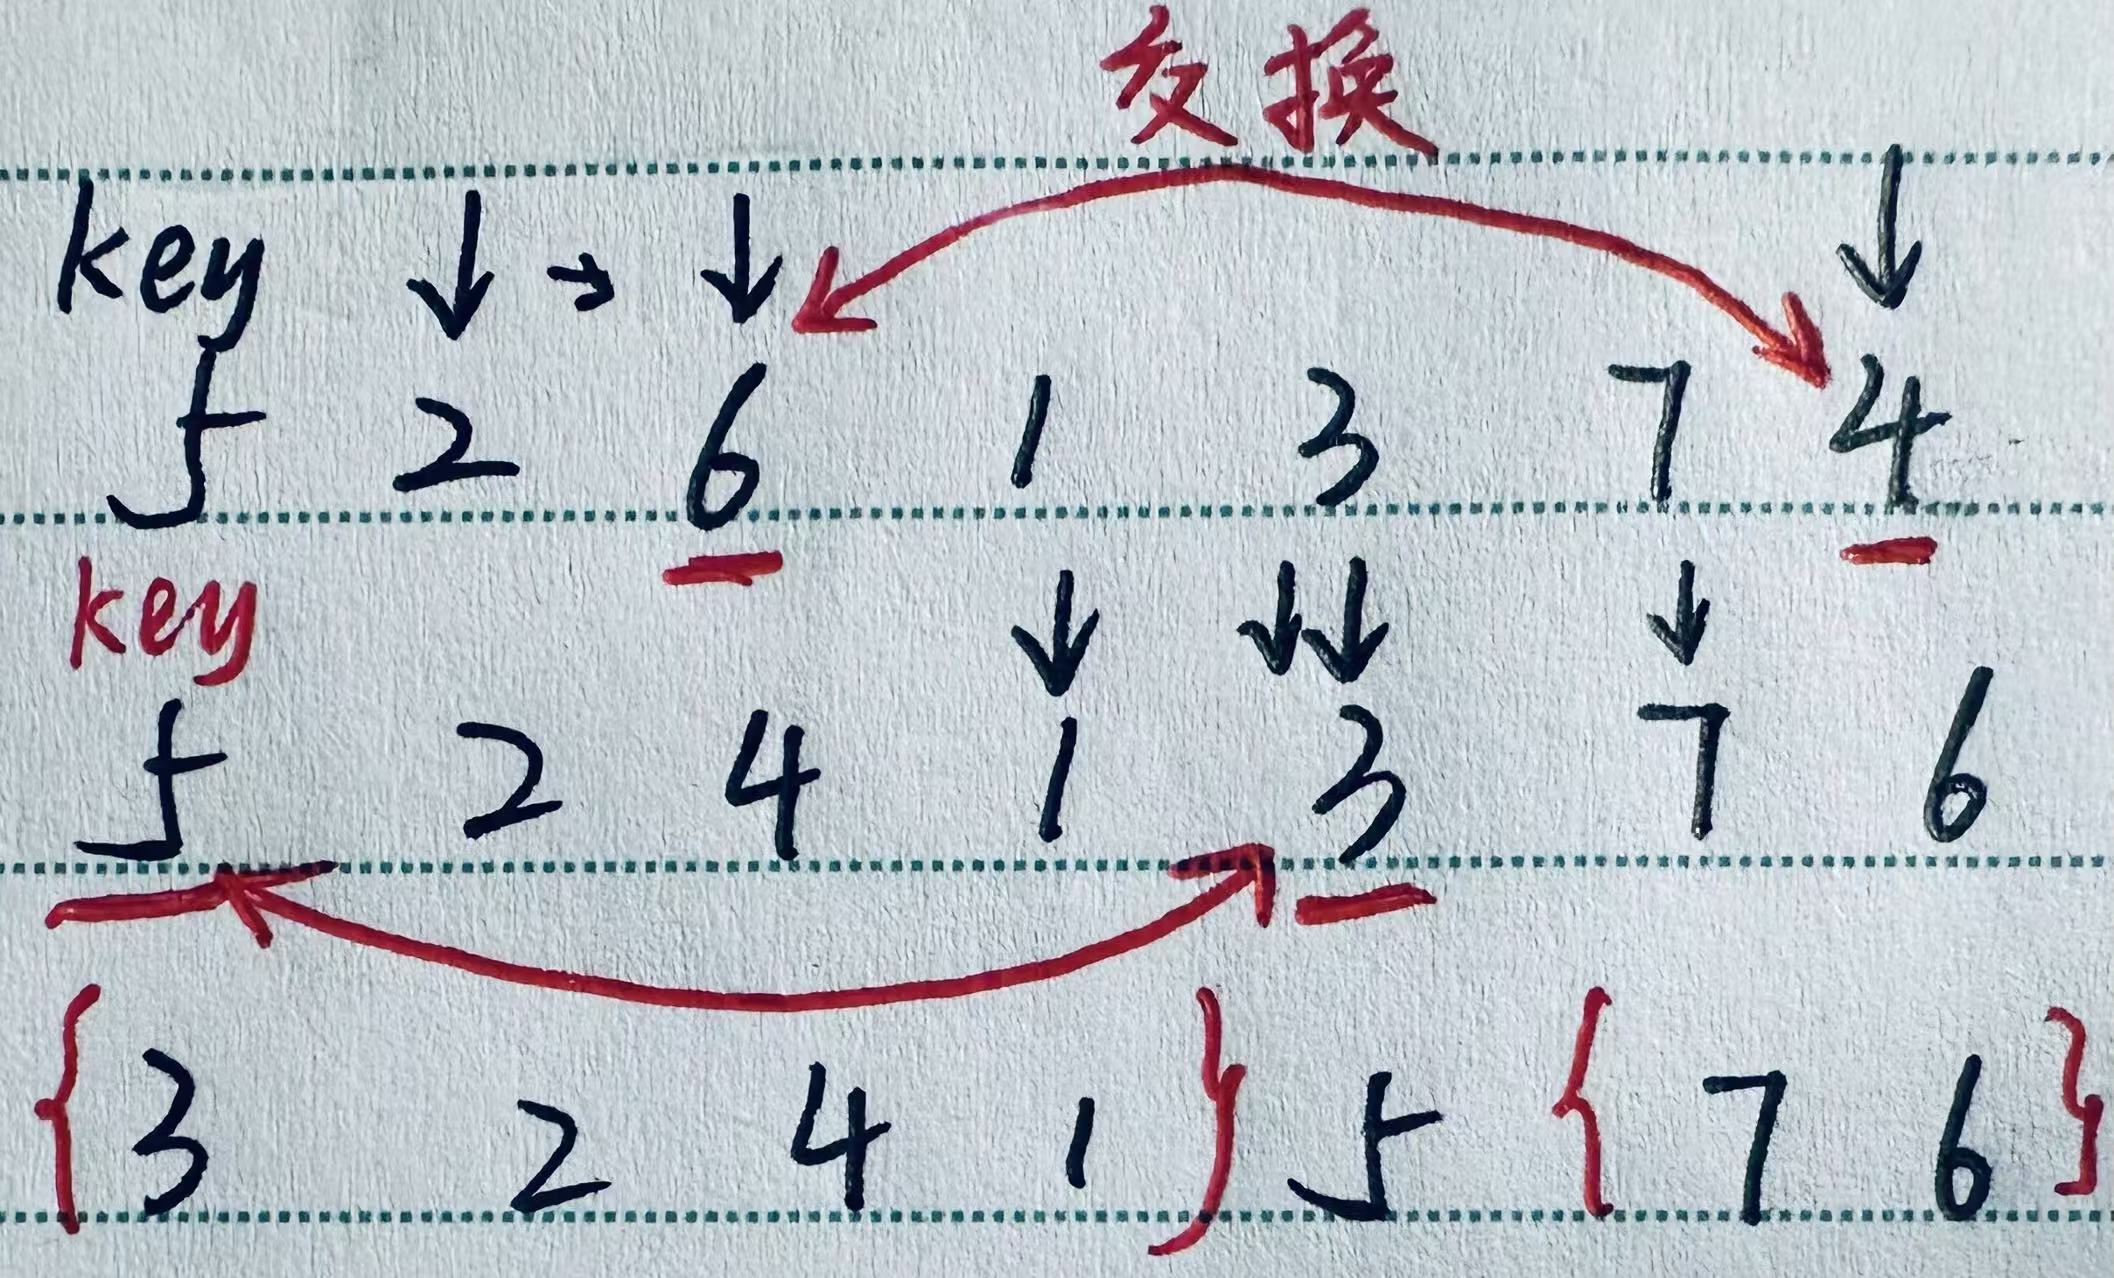 交换
key
5 2 6 1 3 7 4
key
5 2 4 1 3 7 6
{3 2 4 1} 5 {7 6}